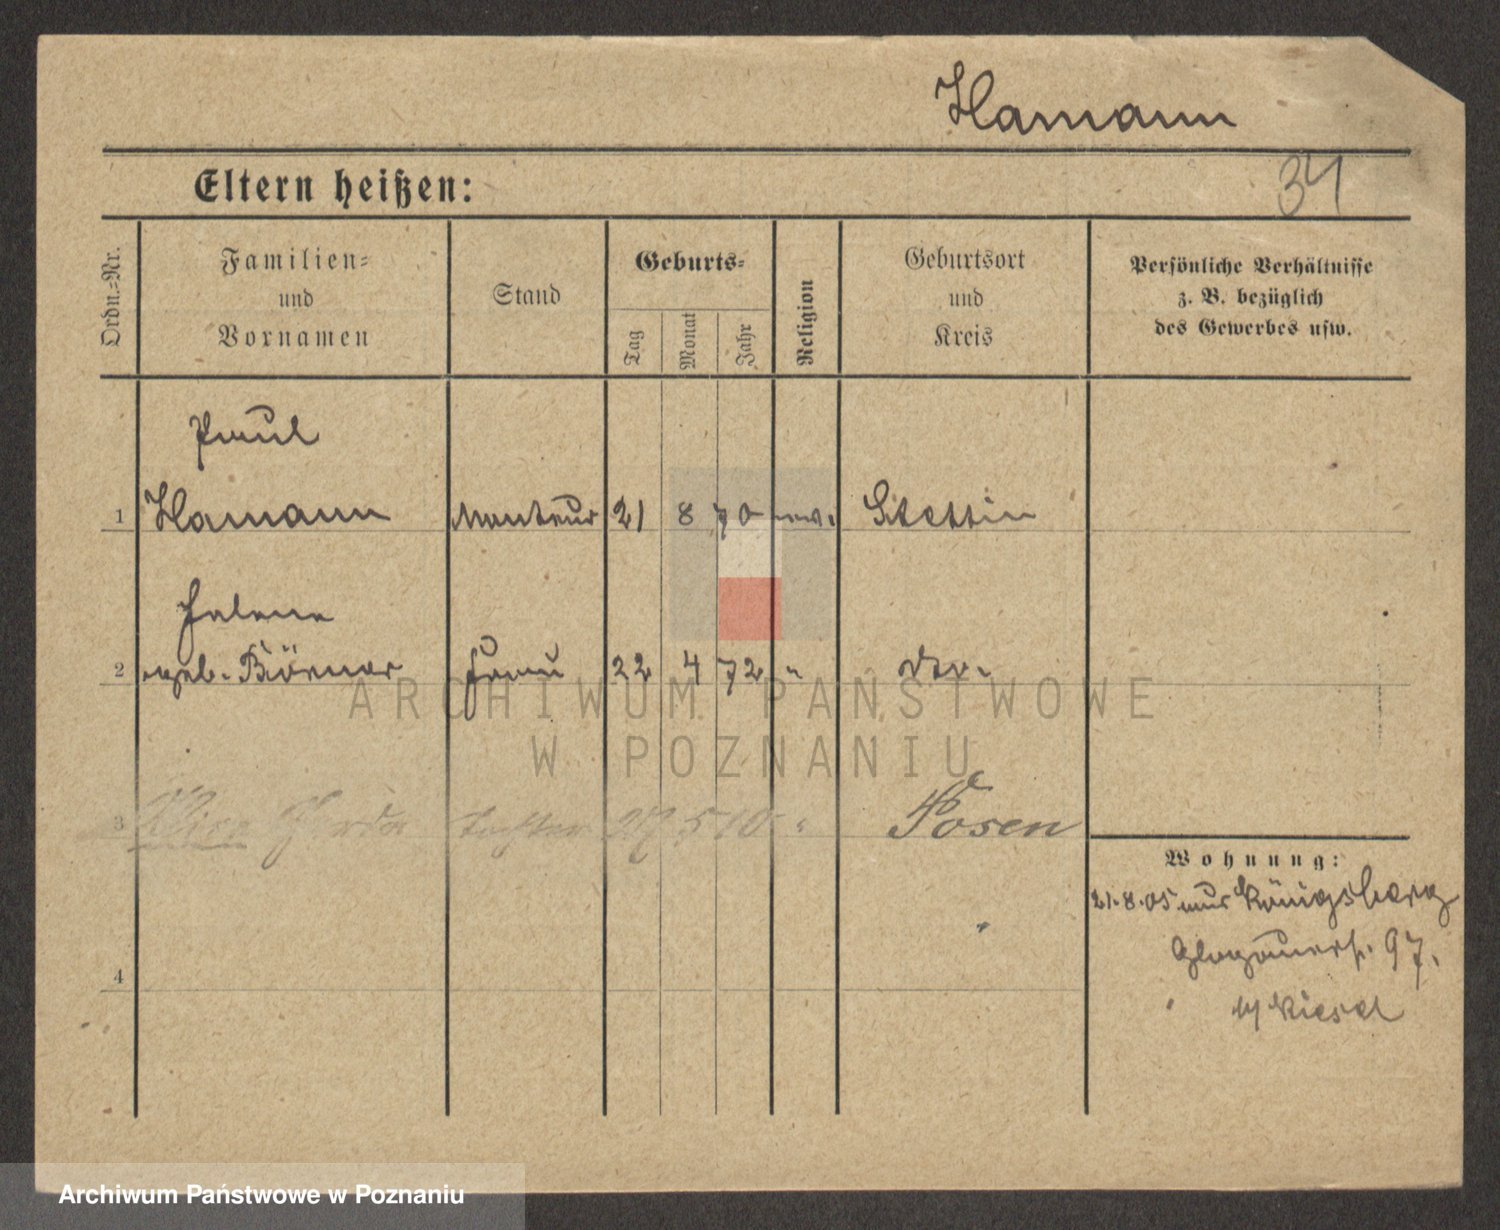 Hamann
Eltern heißen:
34
Ordn.-Nr.
Familien-
und
Vornamen
Stand
Geburts-
Tag
Monat
Jahr
Religion
Geburtsort
und
Kreis
Persönliche Verhältnisse
z. B. bezüglich
des Gewerbes usw.
Paul
1 Hamann Monteur 21 8 70 ev. Stettin
Helene
2 geb. Börner Frau 22 4 72 " dto.
3 Gerda Tochter 27 5 10 " Posen
Wohnung:
21.8.05 aus Königsberg
Glogauerstr. 97.
b/ Kiesel
4
ARCHIWUM PAŃSTWOWE
W POZNANIU
Archiwum Państwowe w Poznaniu